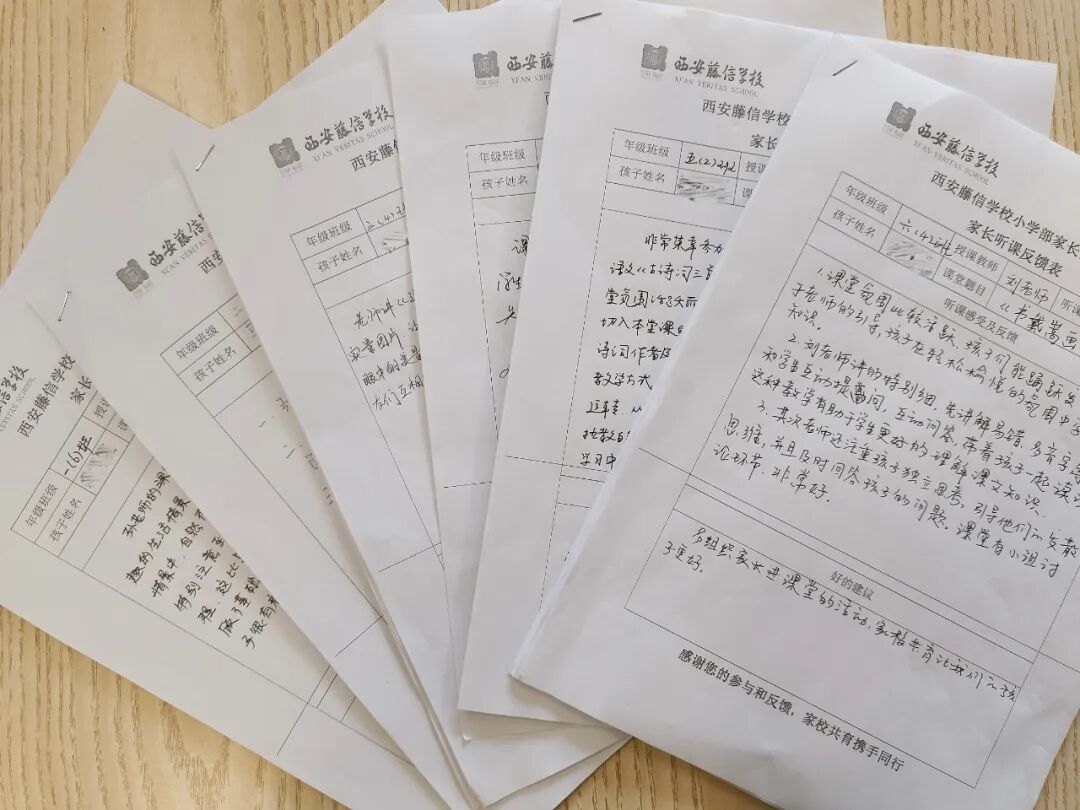 西安藤信学校
XI'AN VERITAS SCHOOL
西安藤信学校小学部家长
家长听课反馈表
年级班级
六(4)班
授课教师
刘老师
听课
孩子姓名
课堂题目
《书戴嵩画
听课感受及反馈
1.课堂氛围比较活跃,孩子们能踊跃发
于老师的引导,孩子在轻松愉悦的氛围中学
知识。
2.刘老师讲的特别细,先讲解易错、多音字等
和学生互动提问,互动问答,带着孩子一起读
这种教学有助于学生更好的理解课文知识、
3、其次老师还注重孩子独立思考,引导他们的发散
思维,并且及时间答孩子的问题。课堂有小组讨
论环节,非常好。
好的建议
多组织家长进课堂的活动,家校共育让我们的孩
子更好。
感谢您的参与和反馈,家校共育携手同行
西安藤信学校
XI'AN VERITAS SCHOOL
西安藤信学校
家长
年级班级
五(2)班
授课
孩子姓名
课
非常荣幸参加
语文《古诗词三首
堂氛围
切入本堂课
诗词作者及
教学方式
学习中
西安藤信学校
XI'AN VERITAS SCHOOL
年级班级
孩子姓名
课
西安藤信学校
XI'AN VERITAS SCHOOL
西安藤信学校
年级班级
孩子姓名
老师讲
实景图片
眼中的美景
友们互相
西安藤信学校
XI'AN VERITAS SCHOOL
西安
年级班级
孩子姓名
信学校
AS SCHOOL
西安藤信学校
家长
年级班级
一(6)班
授课
孩子姓名
课
孙老师的课
趣的生活情景
情景中,自然
特别注意
程,这也
子很有